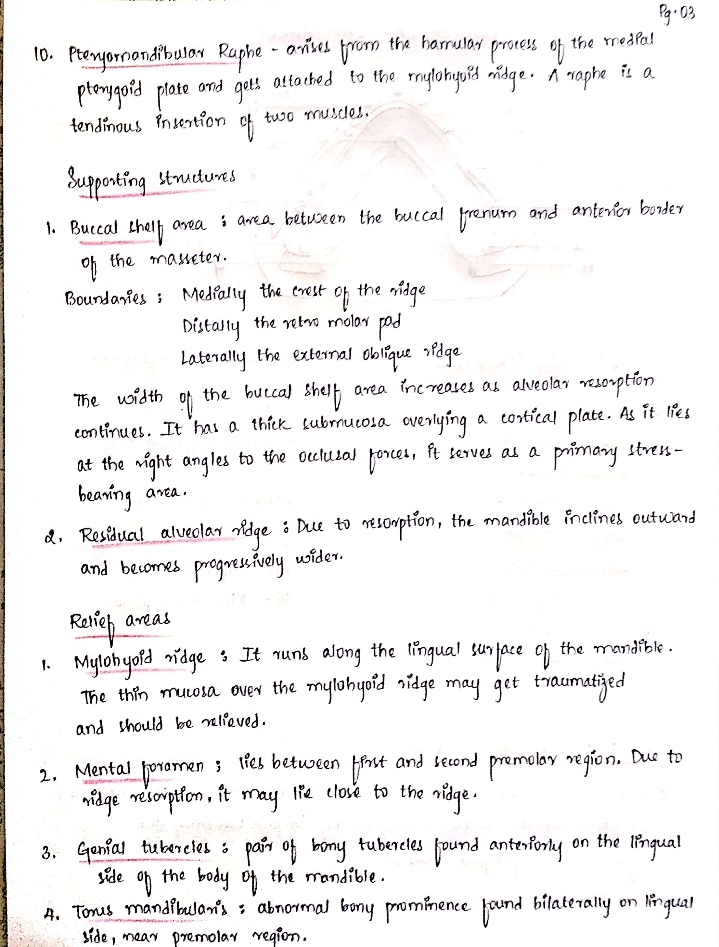 Pg.03
10. Pterygomandibular Raphe - arises from the hamular process of the medial
pterygoid plate and gets attached to the mylohyoid ridge. A raphe is a
tendinous insertion of two muscles.
Supporting structures
1. Buccal shelf area : area between the buccal frenum and anterior border
of the masseter.
Boundaries : Medially the crest of the ridge
Distally the retro molar pad
Laterally the external oblique ridge
The width of the buccal shelf area increases as alveolar resorption
continues. It has a thick submucosa overlying a cortical plate. As it lies
at the right angles to the occlusal forces, it serves as a primary stress-
bearing area.
2. Residual alveolar ridge : Due to resorption, the mandible inclines outward
and becomes progressively wider.
Relief areas
1. Mylohyoid ridge : It runs along the lingual surface of the mandible.
The thin mucosa over the mylohyoid ridge may get traumatized
and should be relieved.
2. Mental foramen : lies between first and second premolar region. Due to
ridge resorption, it may lie close to the ridge.
3. Genial tubercles : pair of bony tubercles found anteriorly on the lingual
side of the body of the mandible.
4. Torus mandibularis : abnormal bony prominence found bilaterally on lingual
side, near premolar region.